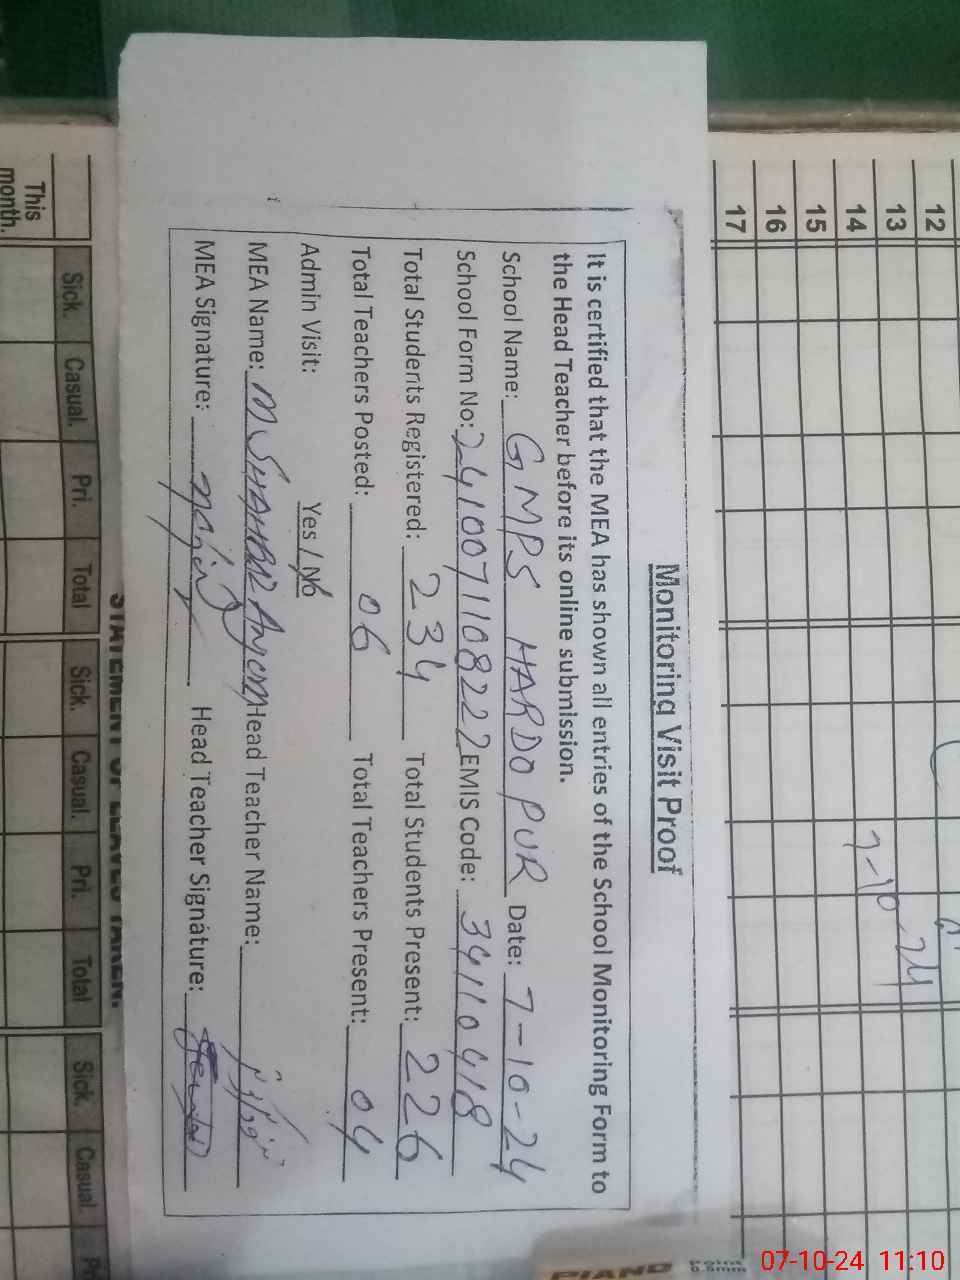 Monitoring Visit Proof
It is certified that the MEA has shown all entries of the School Monitoring Form to
the Head Teacher before its online submission.
School Name: GMPS HARDO PUR Date: 7-10-24
School Form No: 2410071108222 EMIS Code: 34110418
Total Students Registered: 234 Total Students Present: 226
Total Teachers Posted: 06 Total Teachers Present: 04
Admin Visit: Yes / No
MEA Name: M Head Teacher Name:
MEA Signature: Head Teacher Signature:
12
13
14
15
16
17
7-10-24
This
month.
Sick. Casual. Pri. Total Sick. Casual. Pri. Total Sick. Casual.
STATEMENT OF LEAVES TAKEN.
PIANO Point
0.8mm
07-10-24 11:10